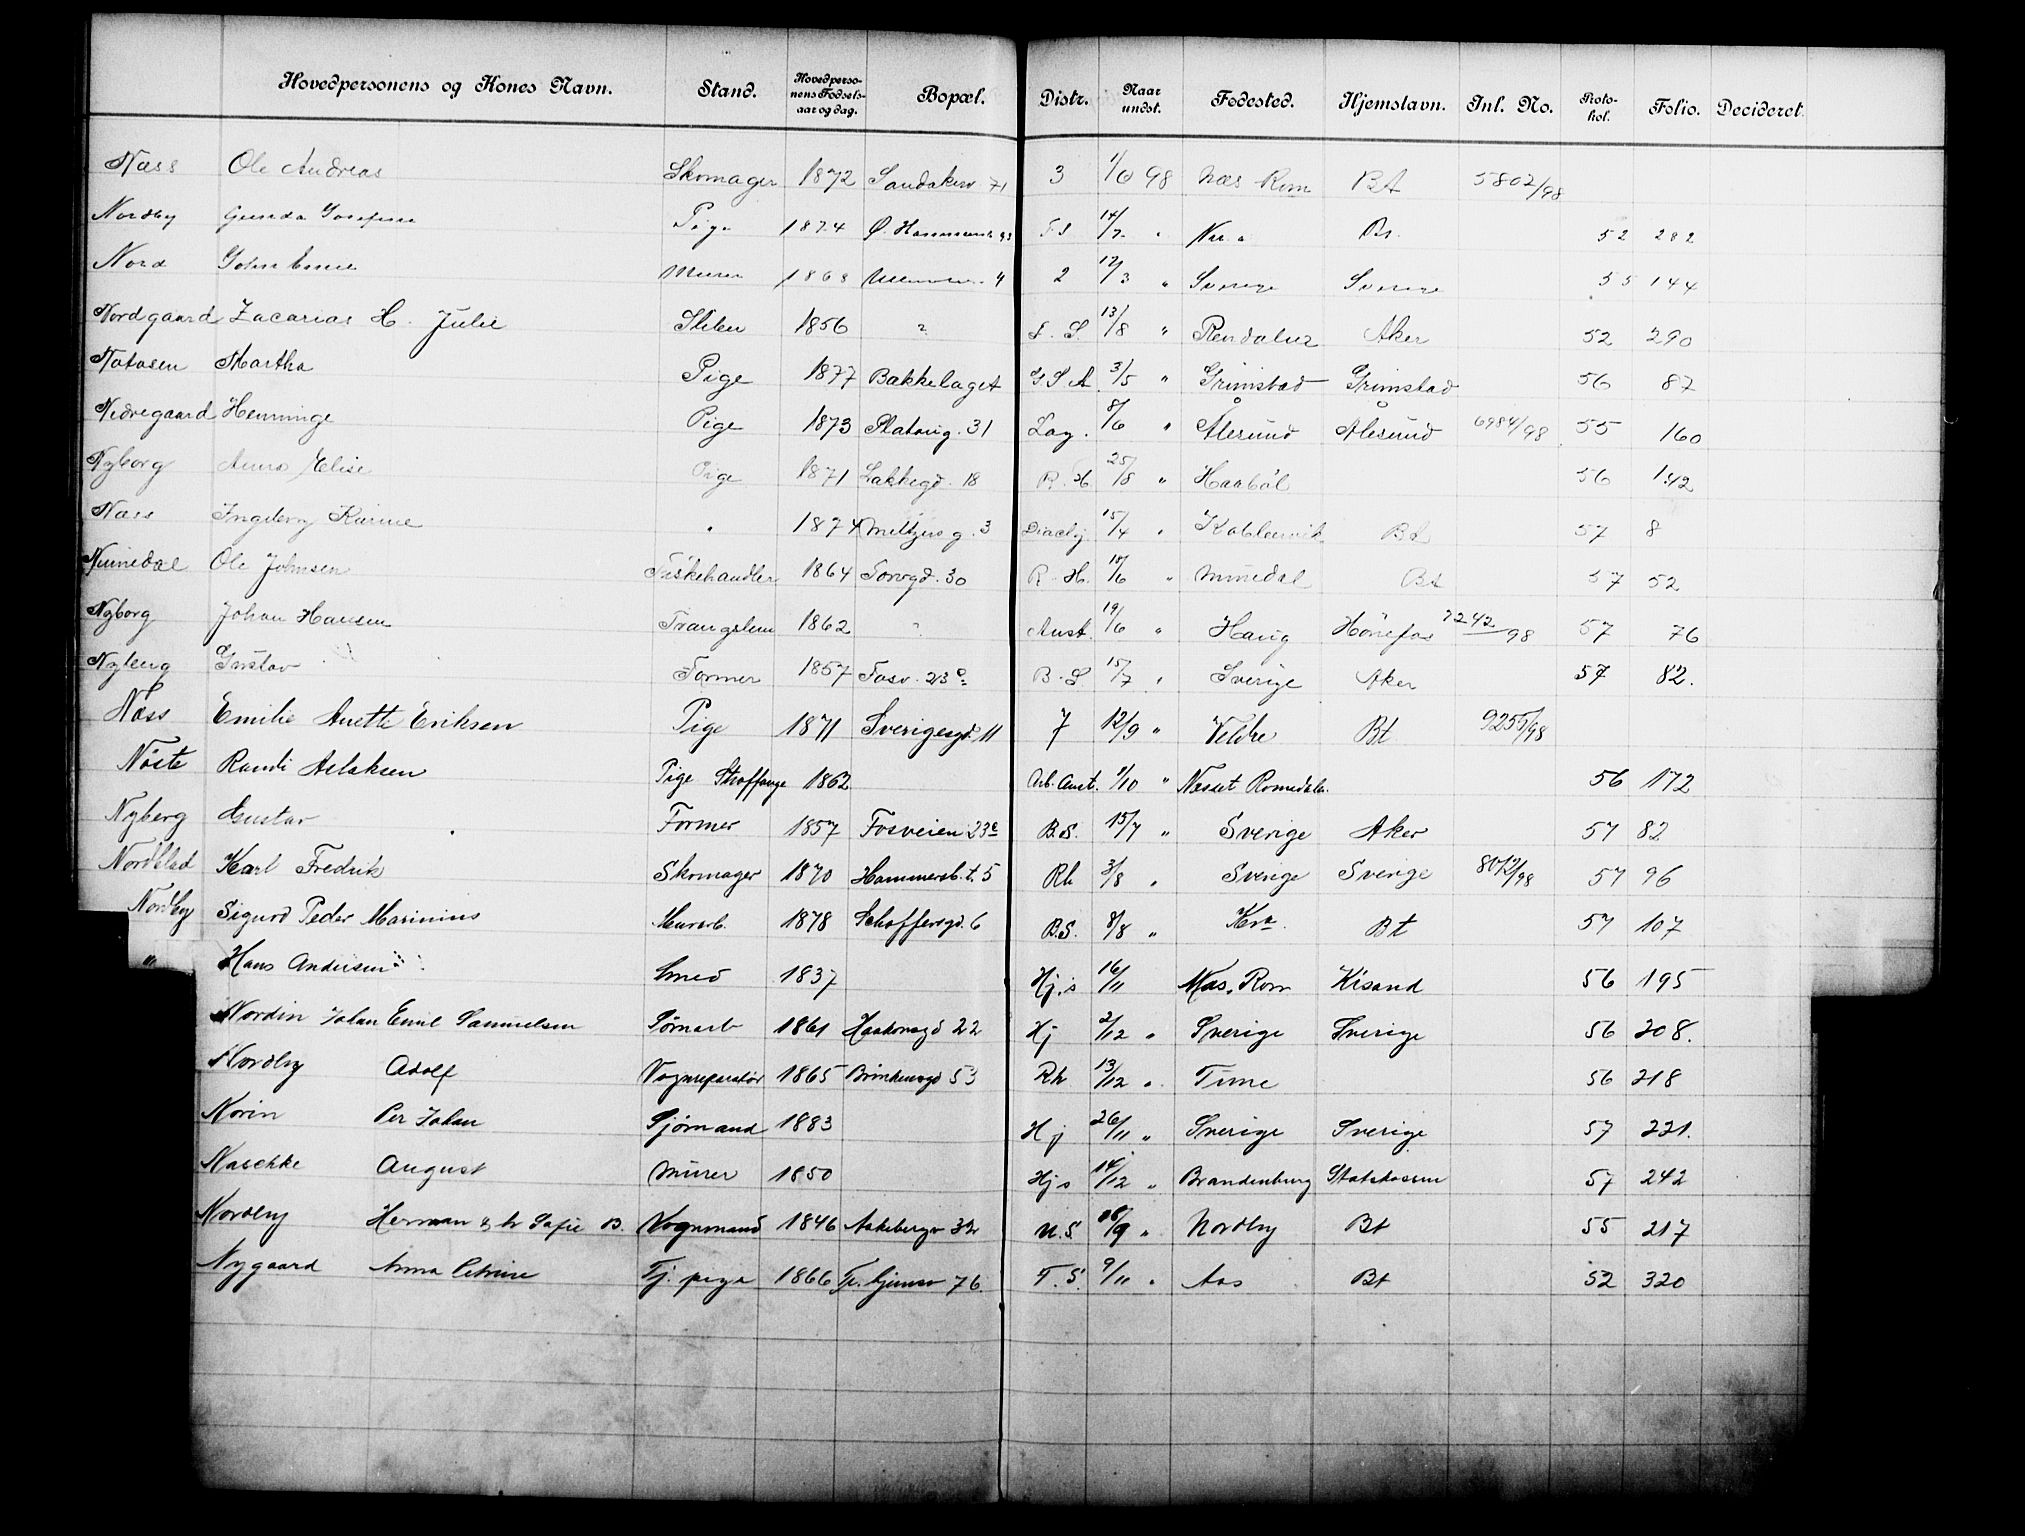 Hovedpersonens og Kones Navn. Stand. Hovedperso-nens Fødsels-aar og dag. Bopæl. Distr. Naar undst. Fødested. Hjemstavn. Inl. No. Proto-kol. Folio. Decideret.
Næss Ole Andreas Skomager 1872 Sandakerv 71 3 1/6 98 Næs Rom Bt 5802/98
Nordby Gunda Josefine Pige 1874 14/7 " Bt 52 282
Nord Murer 1868 4 2 17/3 " Sverige Sverige 55 144
Nordgaard Zacarias H. Julie Sliber 1856 " F. S. 13/8 " Rendalen Aker 52 290
Martha Pige 1877 Bækkelaget G S A 3/5 " Grimstad Grimstad 56 87
Nedregaard Hemminge Pige 1873 Platoug. 31 Lag. 8/6 " Ålesund Ålesund 6984/98 55 160
Nyborg Anna Elise Pige 1871 Lakkegd. 18 R. H. 25/8 " Haabøl 56 142
Næss Ingeborg Karine " 1874 Meltzersg. 3 15/4 " Bt 57 8
Ole Johnsen Fiskehandler 1864 Torvgd. 30 R. H. 10/6 " Bt 57 52
Nyborg Johan Hansen Trangslem 1862 " Anst. 19/6 " Haug Hönefos 7242/98 57 76
Nyberg Gustav Former 1857 Fosv. 23 c B. S. 15/7 " Sverige Aker 57 82.
Næss Emilie Anette Eriksen Pige 1871 Sverigesgd. 11 7 12/9 " Veldre Bt 9255/98
Nöste Randi Aslaksen Pige Straffange 1862 Arb. Anst. 1/10 " Nesset Romsdalen. 56 172
Nyberg Gustav Former 1857 Fosveien 23c B.S. 15/7 " Sverige Aker 57 82
Nordblad Karl Fredrik Skomager 1870 Hammersb. t. 5 Rh 3/8 " Sverige Sverige 8072/98 57 96
Nordby Sigurd Peder Marinius Murarb. 1878 Schoffersgd. 6 B.S. 8/8 " Kra. Bt 57 107
" Hans Andersen Smed 1837 Hj.s 16/11 Næs, Rom Kisand 56 195
Nordin Johan Emil Samuelsen Tømarb 1861 Haakonsgd 22 Hj 2/12 " Sverige Sverige 56 208.
Nordby Adolf Vognreparatør 1865 Brinkensgd 53 Rh 13/12 " Tune 56 218
Norin Per Johan Sjømand 1883 Hj 26/11 " Sverige Sverige 57 221.
Naschke August Murer 1850 Hjs 14/12 " Brandenburg Statskassen 57 242
Nordby Herman & h Sofie B. Vognmand 1846 Aakebergv 32 U.S. 16/9 " Nordby Bt 55 217
Nygaard Anna Petrine Tj. pige 1866 Tr. hjemsv 76. T. S. 9/11 " Aas Bt 52 320